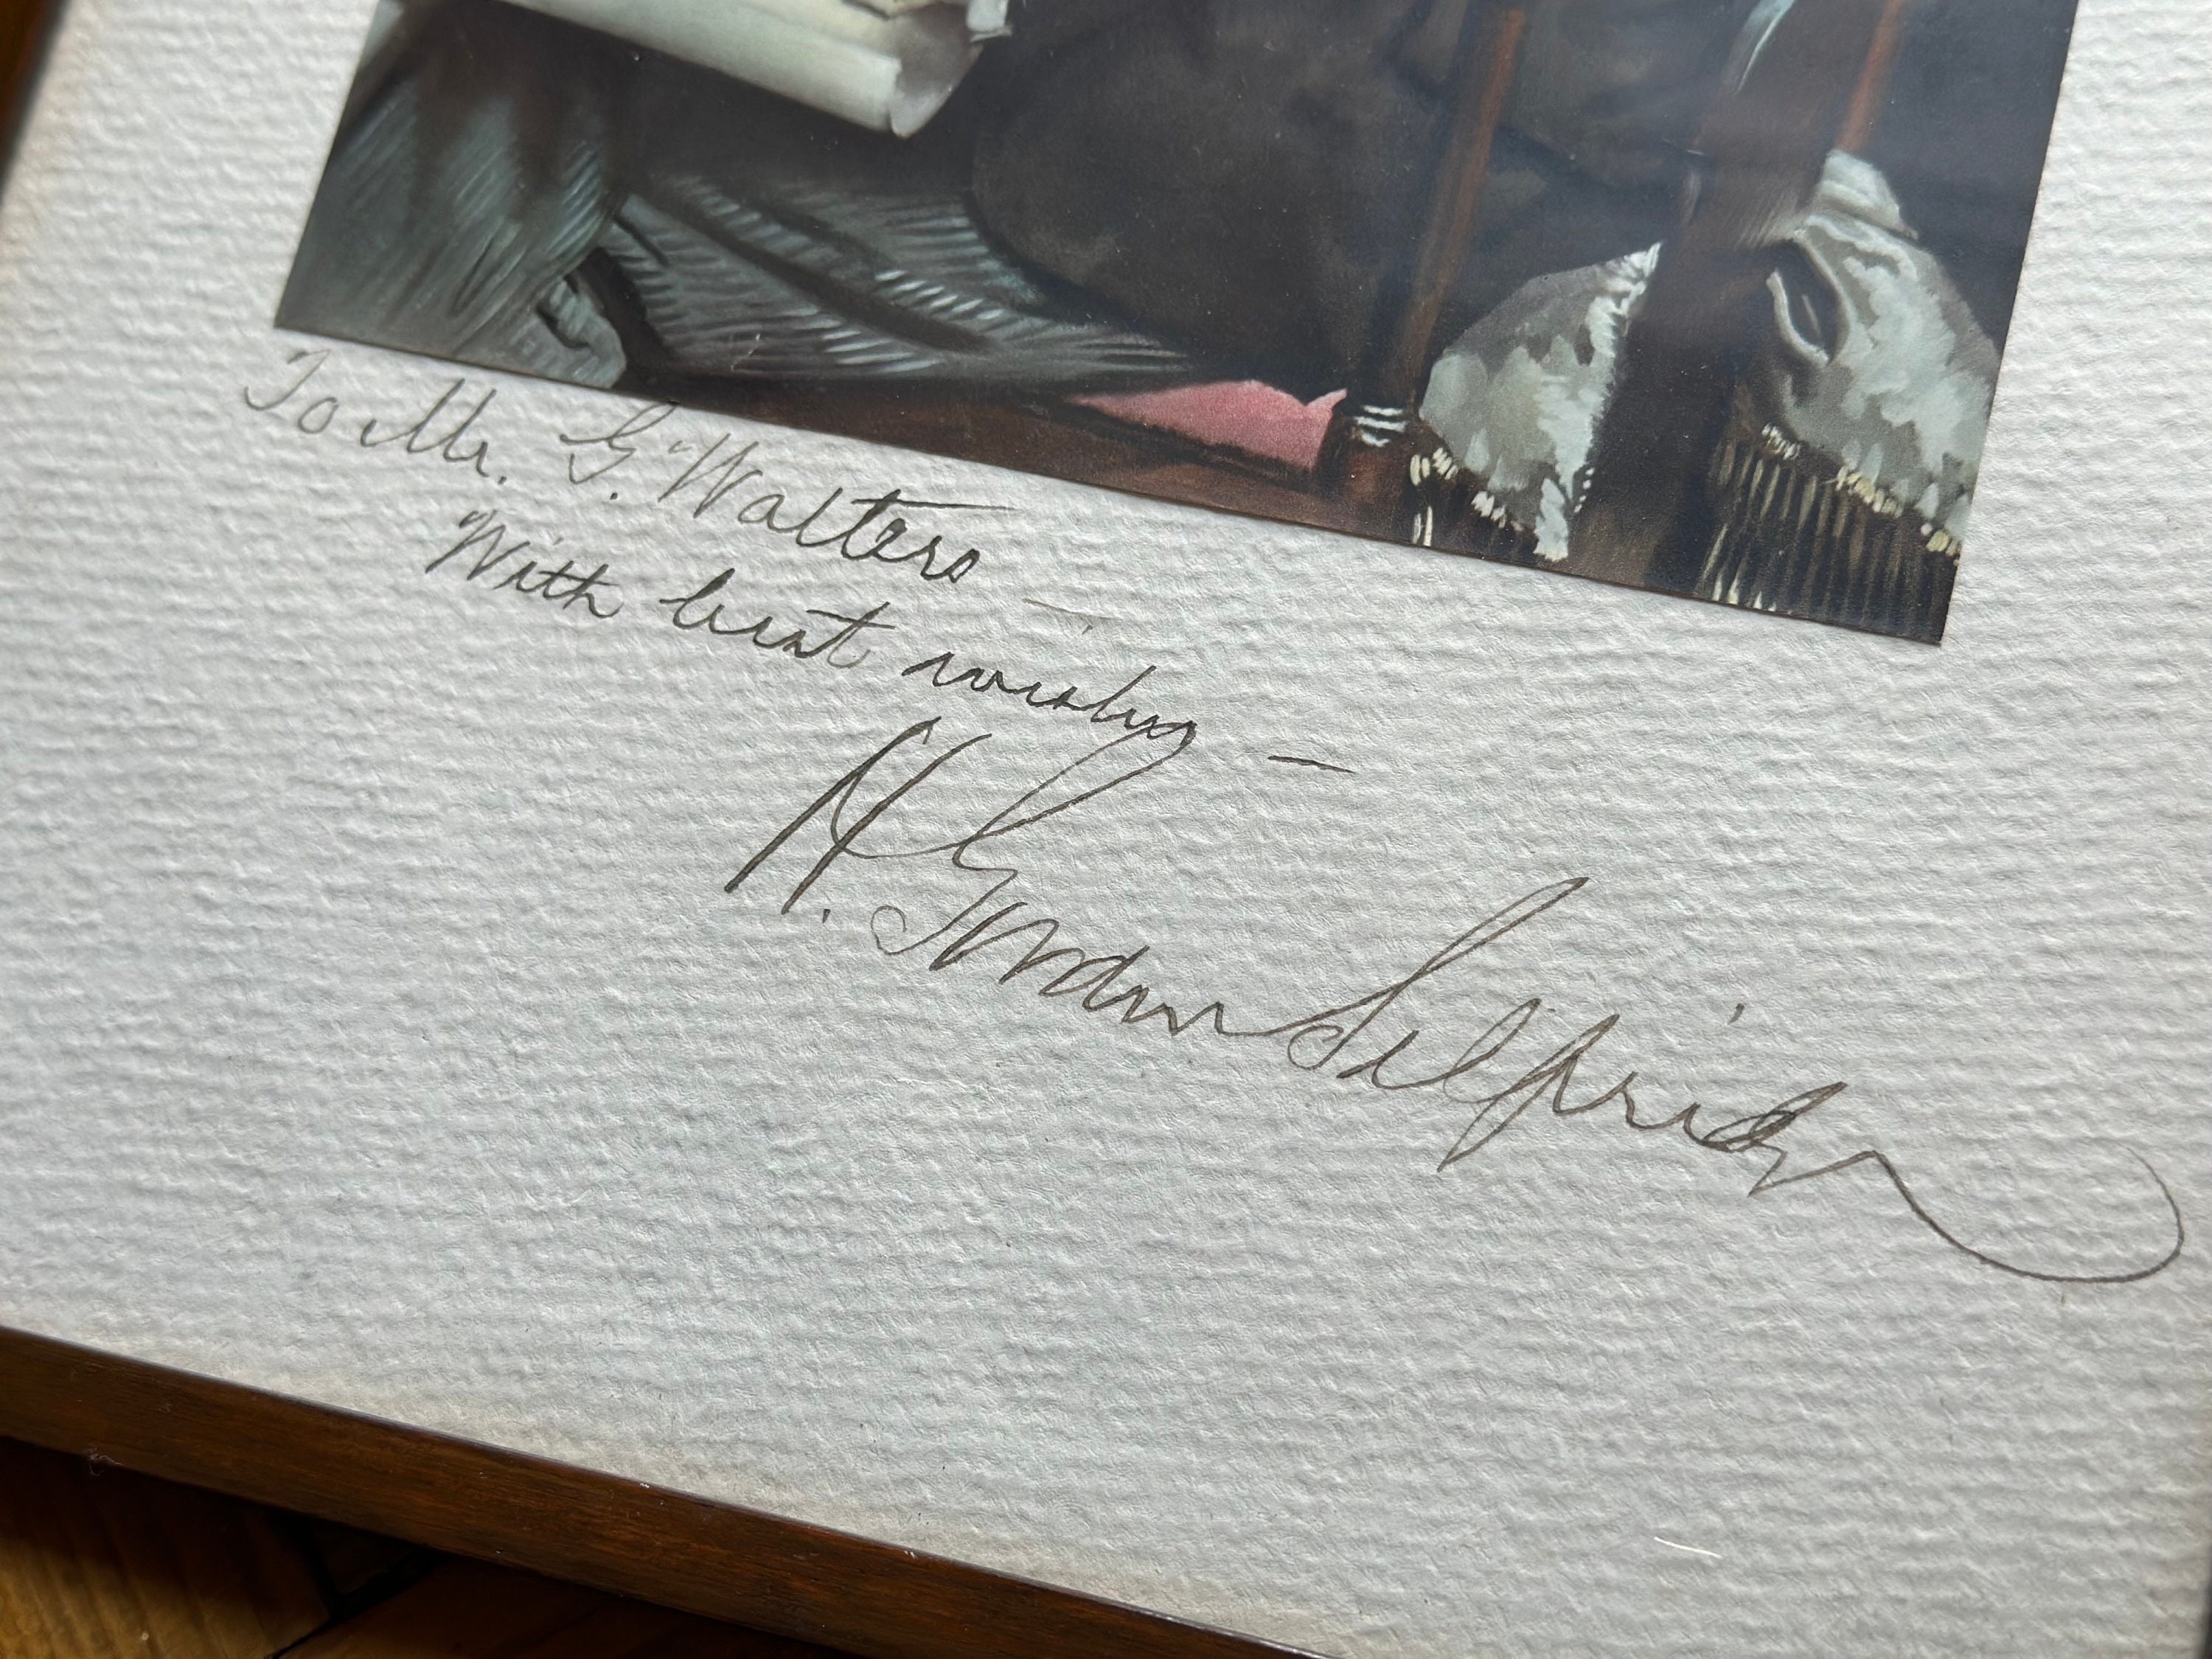 To Mr. G. Walters
With best wishes —
H. Gordon Selfridge